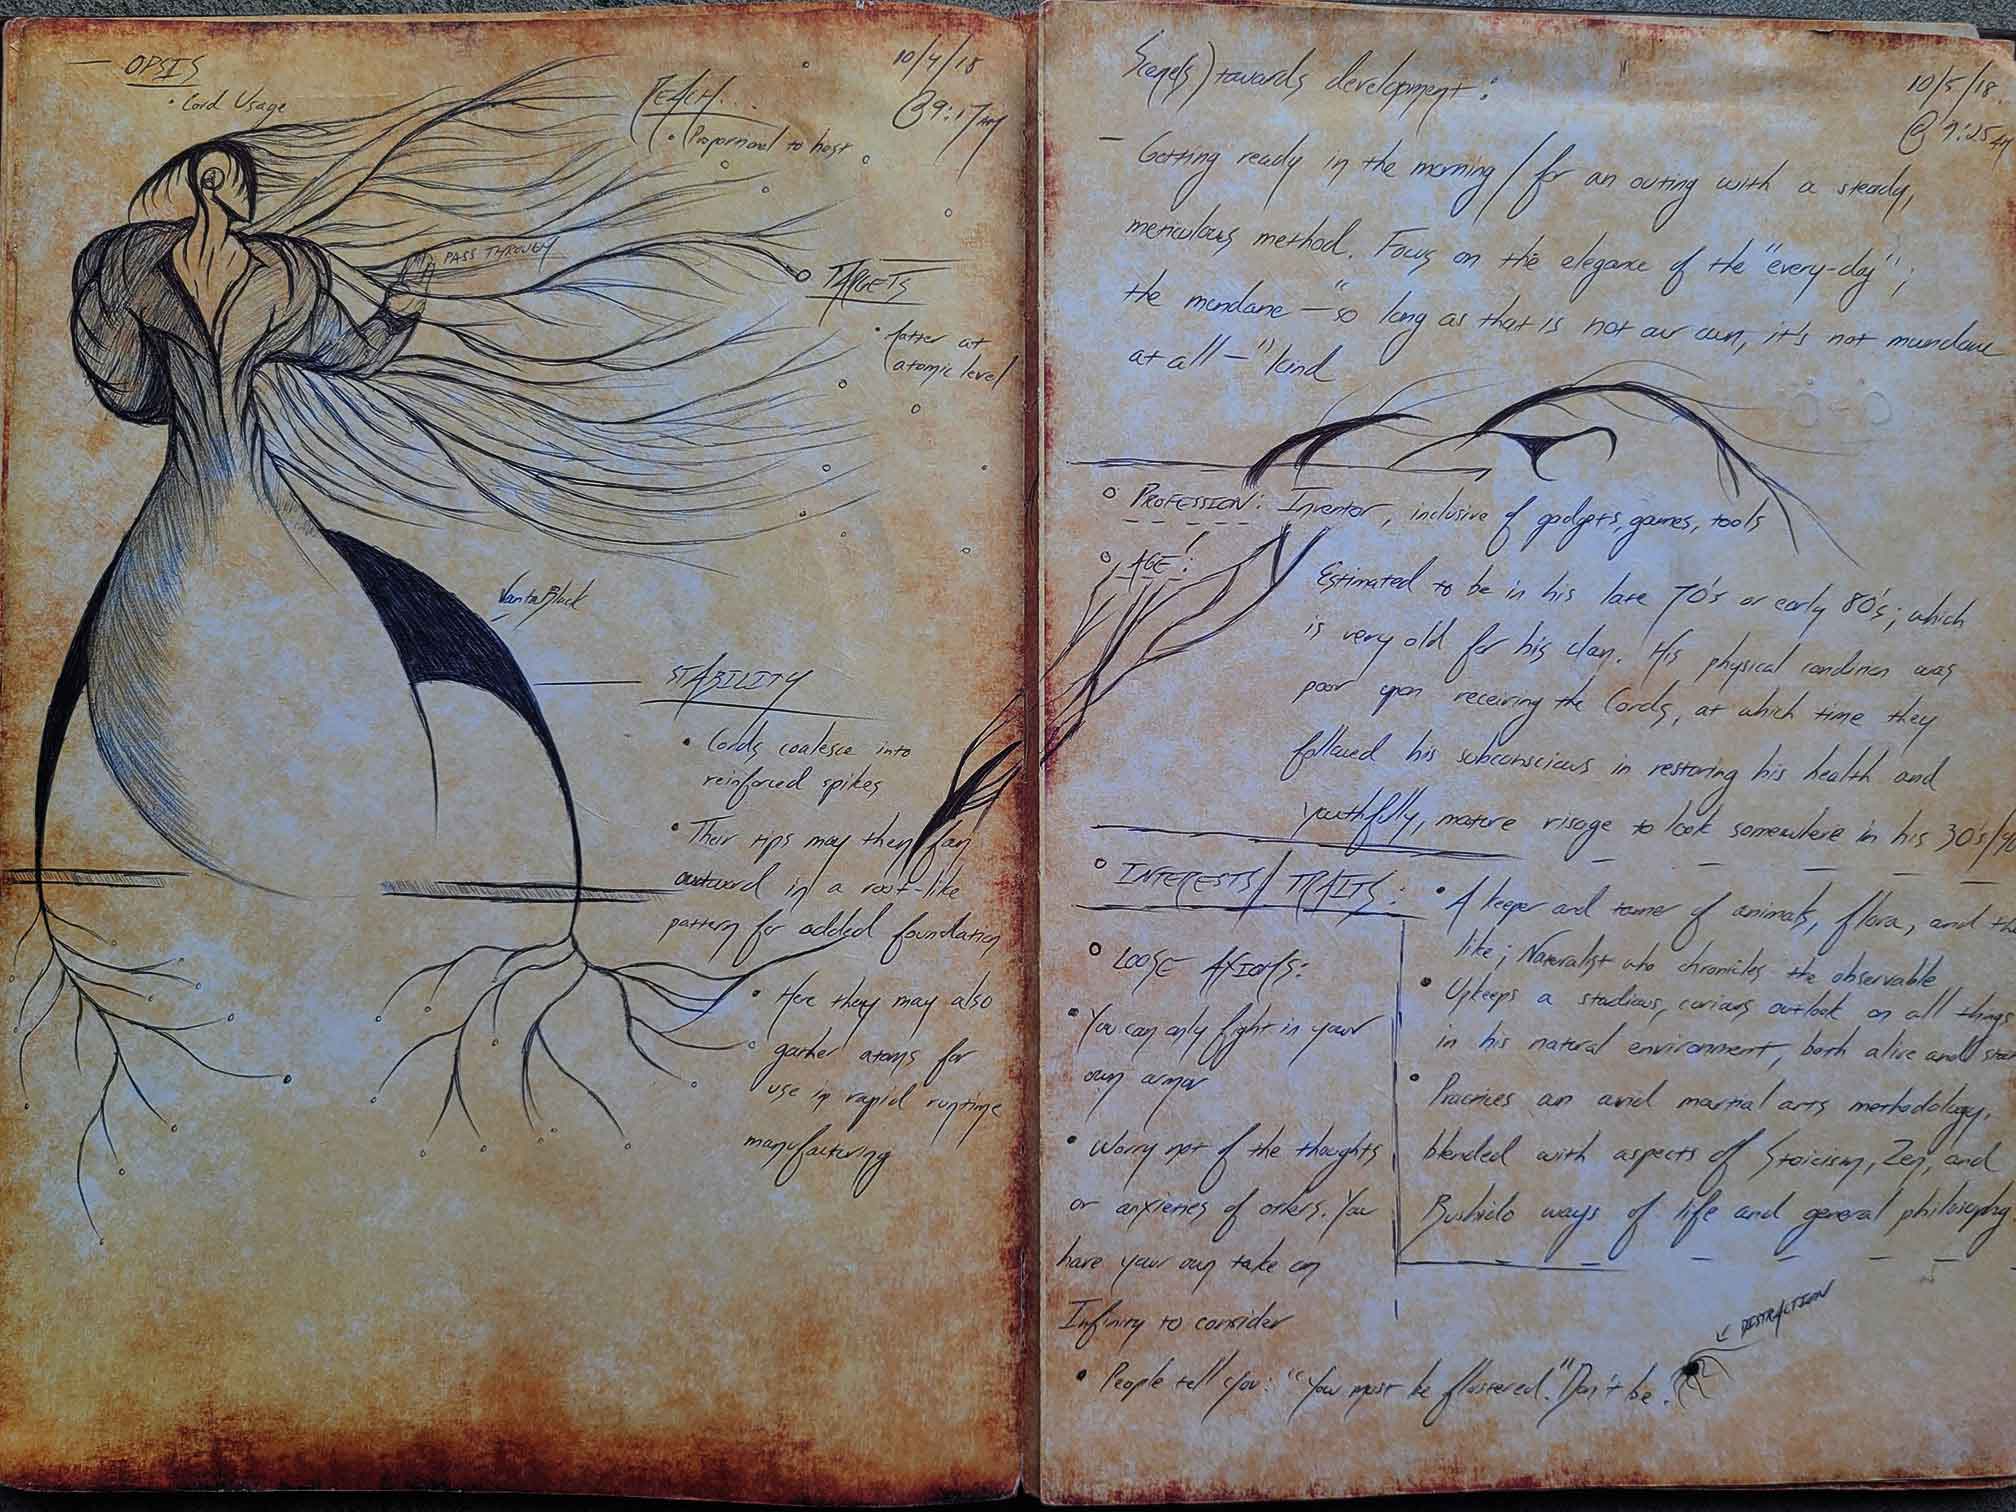 — OPSIS
• Cord Usage
10/4/18
@ 9:17 AM
REACH...
• Proportional to host
PASS THROUGH
TARGETS
• Matter at
atomic level
VantaBlack
STABILITY
• Cords coalesce into
reinforced spikes
• Their tips may then fan
outward in a root-like
pattern for added foundation
• Here they may also
gather atoms for
use in rapid runtime
manufacturing
Scene(s) towards development:
10/5/18
@ 9:25 AM
— Getting ready in the morning / for an outing with a steady,
meticulous method. Focus on the elegance of the "every-day";
the mundane — "so long as that is not our own, it's not mundane
at all —" kind
○ PROFESSION: Inventor, inclusive of gadgets, games, tools
○ AGE:
Estimated to be in his late 70's or early 80's; which
is very old for his clan. His physical condition was
poor upon receiving the Cords, at which time they
followed his subconscious in restoring his health and
youthfully, mature visage to look somewhere in his 30's/40
○ INTERESTS/TRAITS:
• A keeper and tamer of animals, flora, and the
like; Naturalist who chronicles the observable
• Upkeeps a studious, curious outlook on all things
in his natural environment, both alive and
• Practices an avid martial arts methodology,
blended with aspects of Stoicism, Zen, and
Bushido ways of life and general philosophy
○ LOOSE AXIOMS:
• You can only fight in your
own armor
• Worry not of the thoughts
or anxieties of others. You
have your own take on
Infinity to consider
• People tell you: "You must be flustered." Don't be.
DISTRACTION